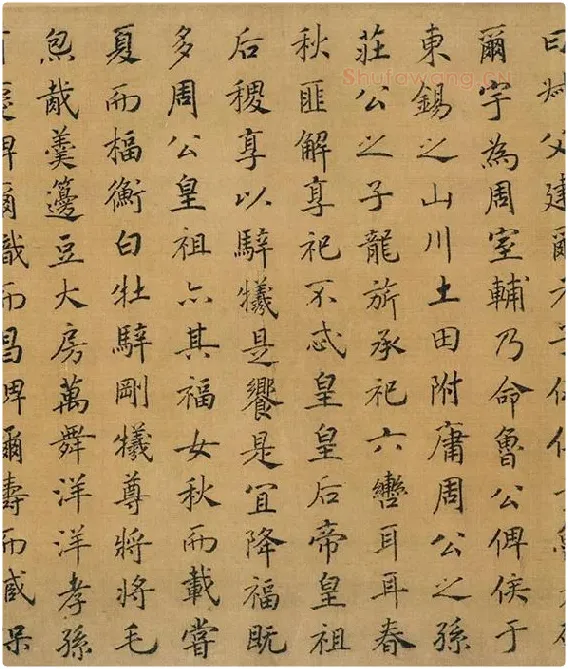 Shufawang.cn
曰叔父建爾元子
爾宇為周室輔乃命魯公俾侯于
東錫之山川土田附庸周公之孫
莊公之子龍旂承祀六轡耳耳春
秋匪解享祀不忒皇皇后帝皇祖
后稷享以騂犧是饗是宜降福既
多周公皇祖亦其福女秋而載嘗
夏而楅衡白牡騂剛犧尊將將毛
炰胾羹籩豆大房萬舞洋洋孝孫
慶俾爾熾而昌俾爾壽而臧保